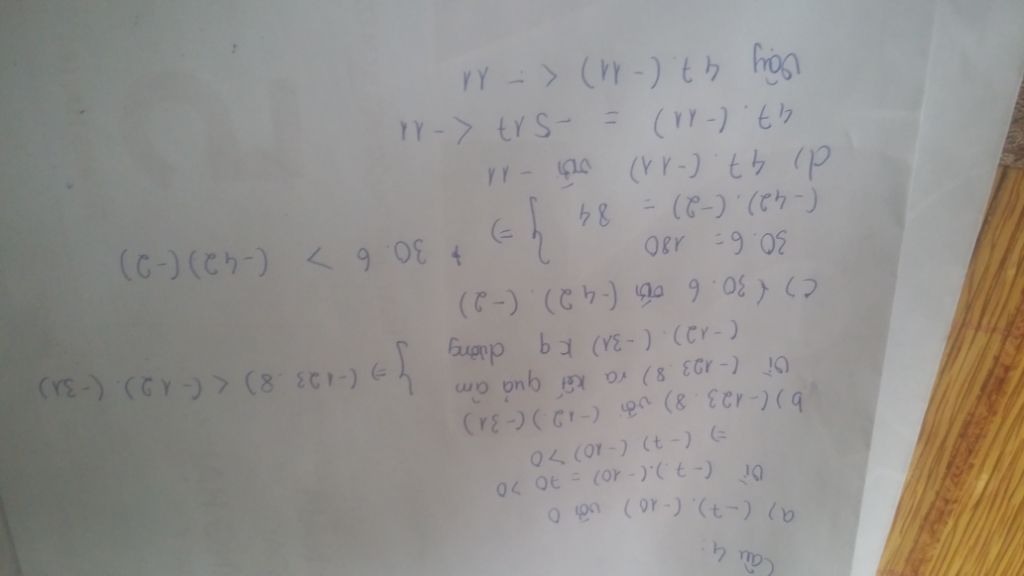 Câu 4:
a) (-7).(-10) với 0
Vì (-7).(-10) = 70 > 0
=> (-7)(-10) > 0
b) (-123.8) với (-12)(-31)
Vì (-123.8) ra kết quả âm
(-12).(-31) kq dương } => (-123.8) < (-12).(-31)
c) 30.6 với (-42).(-2)
30.6 = 180
(-42).(-2) = 84 } => 30.6 > (-42)(-2)
d) 47.(-11) với -11
47.(-11) = -517 < -11
Vậy 47.(-11) < -11